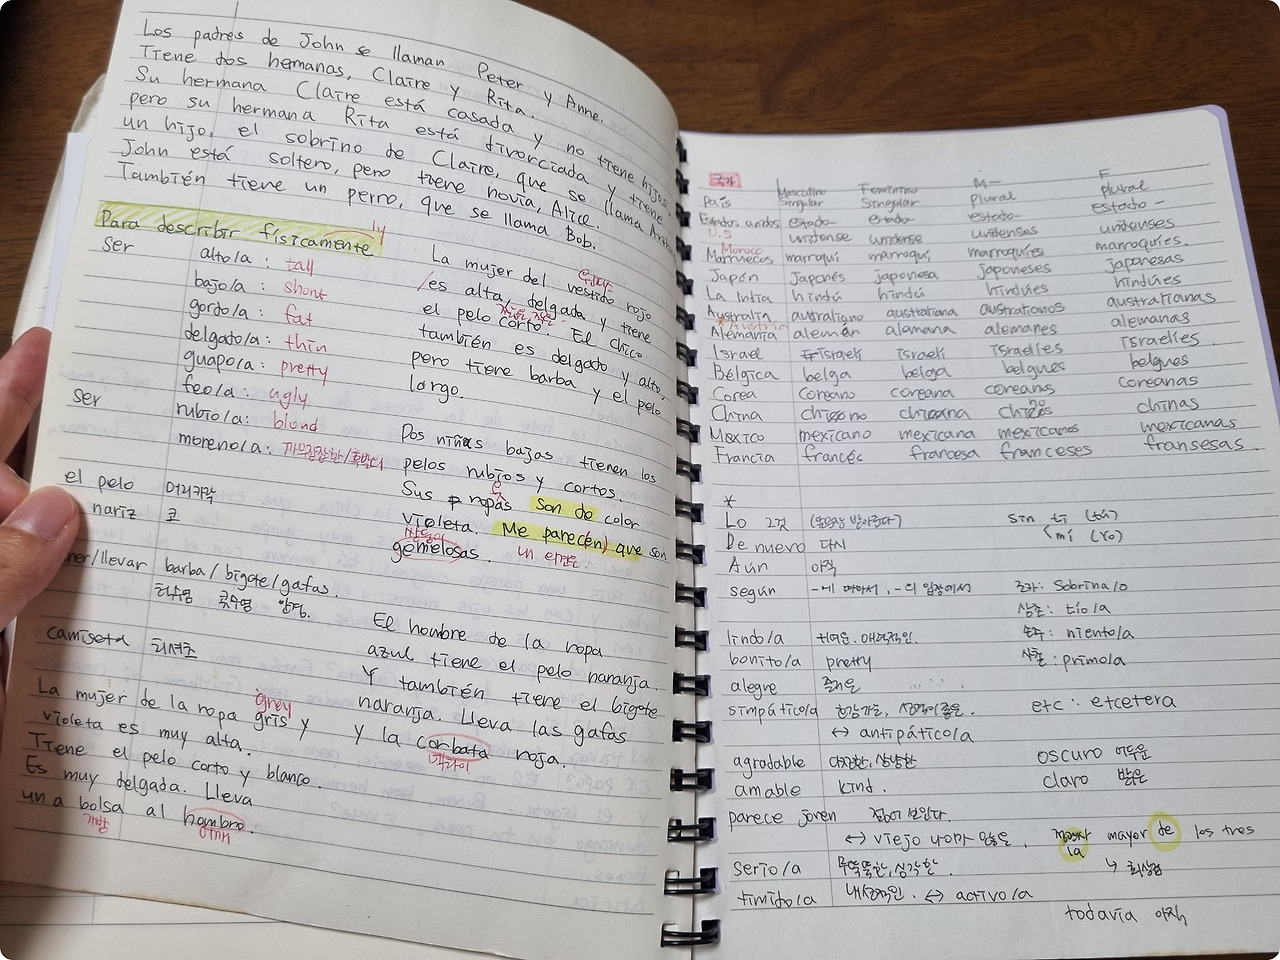 Los padres de John se llaman Peter y Anne.
Tiene dos hemanas, Claire y Rita.
Su hermana Claire está casada y no tiene hijos,
pero su hermana Rita está divorciada y tiene
un hijo, el sobrino de Claire, que se llama
John está soltero, pero tiene novia, Alice.
También tiene un perro, que se llama Bob.
Para describir físicamente
ly
ser
alto/a : tall
bajo/a : short
gordo/a : fat
delgato/a : thin
guapo/a : pretty
feo/a : ugly
ser
rubio/a : blond
moreno/a :
el pelo 머리카락
nariz 코
/llevar barba / bigote / gafas.
턱수염 콧수염 안경.
camiseta 티셔츠
La mujer de la ropa gris y
grey
violeta es muy alta.
Tiene el pelo corto y blanco.
Es muy delgada. Lleva
una bolsa al hombro.
가방 어깨
La mujer del vestido rojo
es alta, delgada y tiene
el pelo corto. El chico
también es delgado y alto,
pero tiene barba y el pelo
largo.
Dos niñas bajas tienen los
pelos rubios y cortos.
Sus ropas son de color
violeta. Me parece(n) que son
gemelosas.
El hombre de la ropa
azul tiene el pelo naranja.
Y también tiene el bigote
naranja. Lleva las gafas
y la corbata roja.
넥타이
국가
País Masculino Singular Feminino Singular M- plural F plural
Estados unidos estado- estado- estado- estado-
U.S unidense unidense unidenses unidenses
Moroco
Marruecos marroquí marroquí, marroquíes marroquíes.
Japón Japonés japonesa japoneses japonesas
La India hindú hindú hindúes hindúes
Australia australiano australiana australianos australianas
*Austria
Alemania alemán alamana alemanes alemanas
Israel israelí israelí israelíes israelíes.
Bélgica belga belga belgues belgues
Corea coreano coreana coreans coreanas
China chicono chicana chinas
Mexico mexicano mexicana mexicanos mexicanas
Francia francés francesa franceses fransesas.
*
Lo 그것 sin ti (tú)
mí (Yo)
De nuevo 다시
Aún 아직
según -에 따라서, -의 입장에서 조카: Sobrina/o
삼촌: tío/a
lindo/a 귀여운, 매력적인. 손주: niento/a
bonito/a pretty 사촌: primo/a
alegre 즐거운
simpático/a etc : etcetera
↔ antipático/a
agradable 다정한, 상냥한 oscuro 어두운
amable kind. claro 밝은
parece joven 젊어 보인다.
↔ viejo 나이가 많은. la mayor de los tres
↳ 최상급
serio/a 무뚝뚝한, 심각한.
timido/a 내성적인. ↔ activo/a
todavía 아직